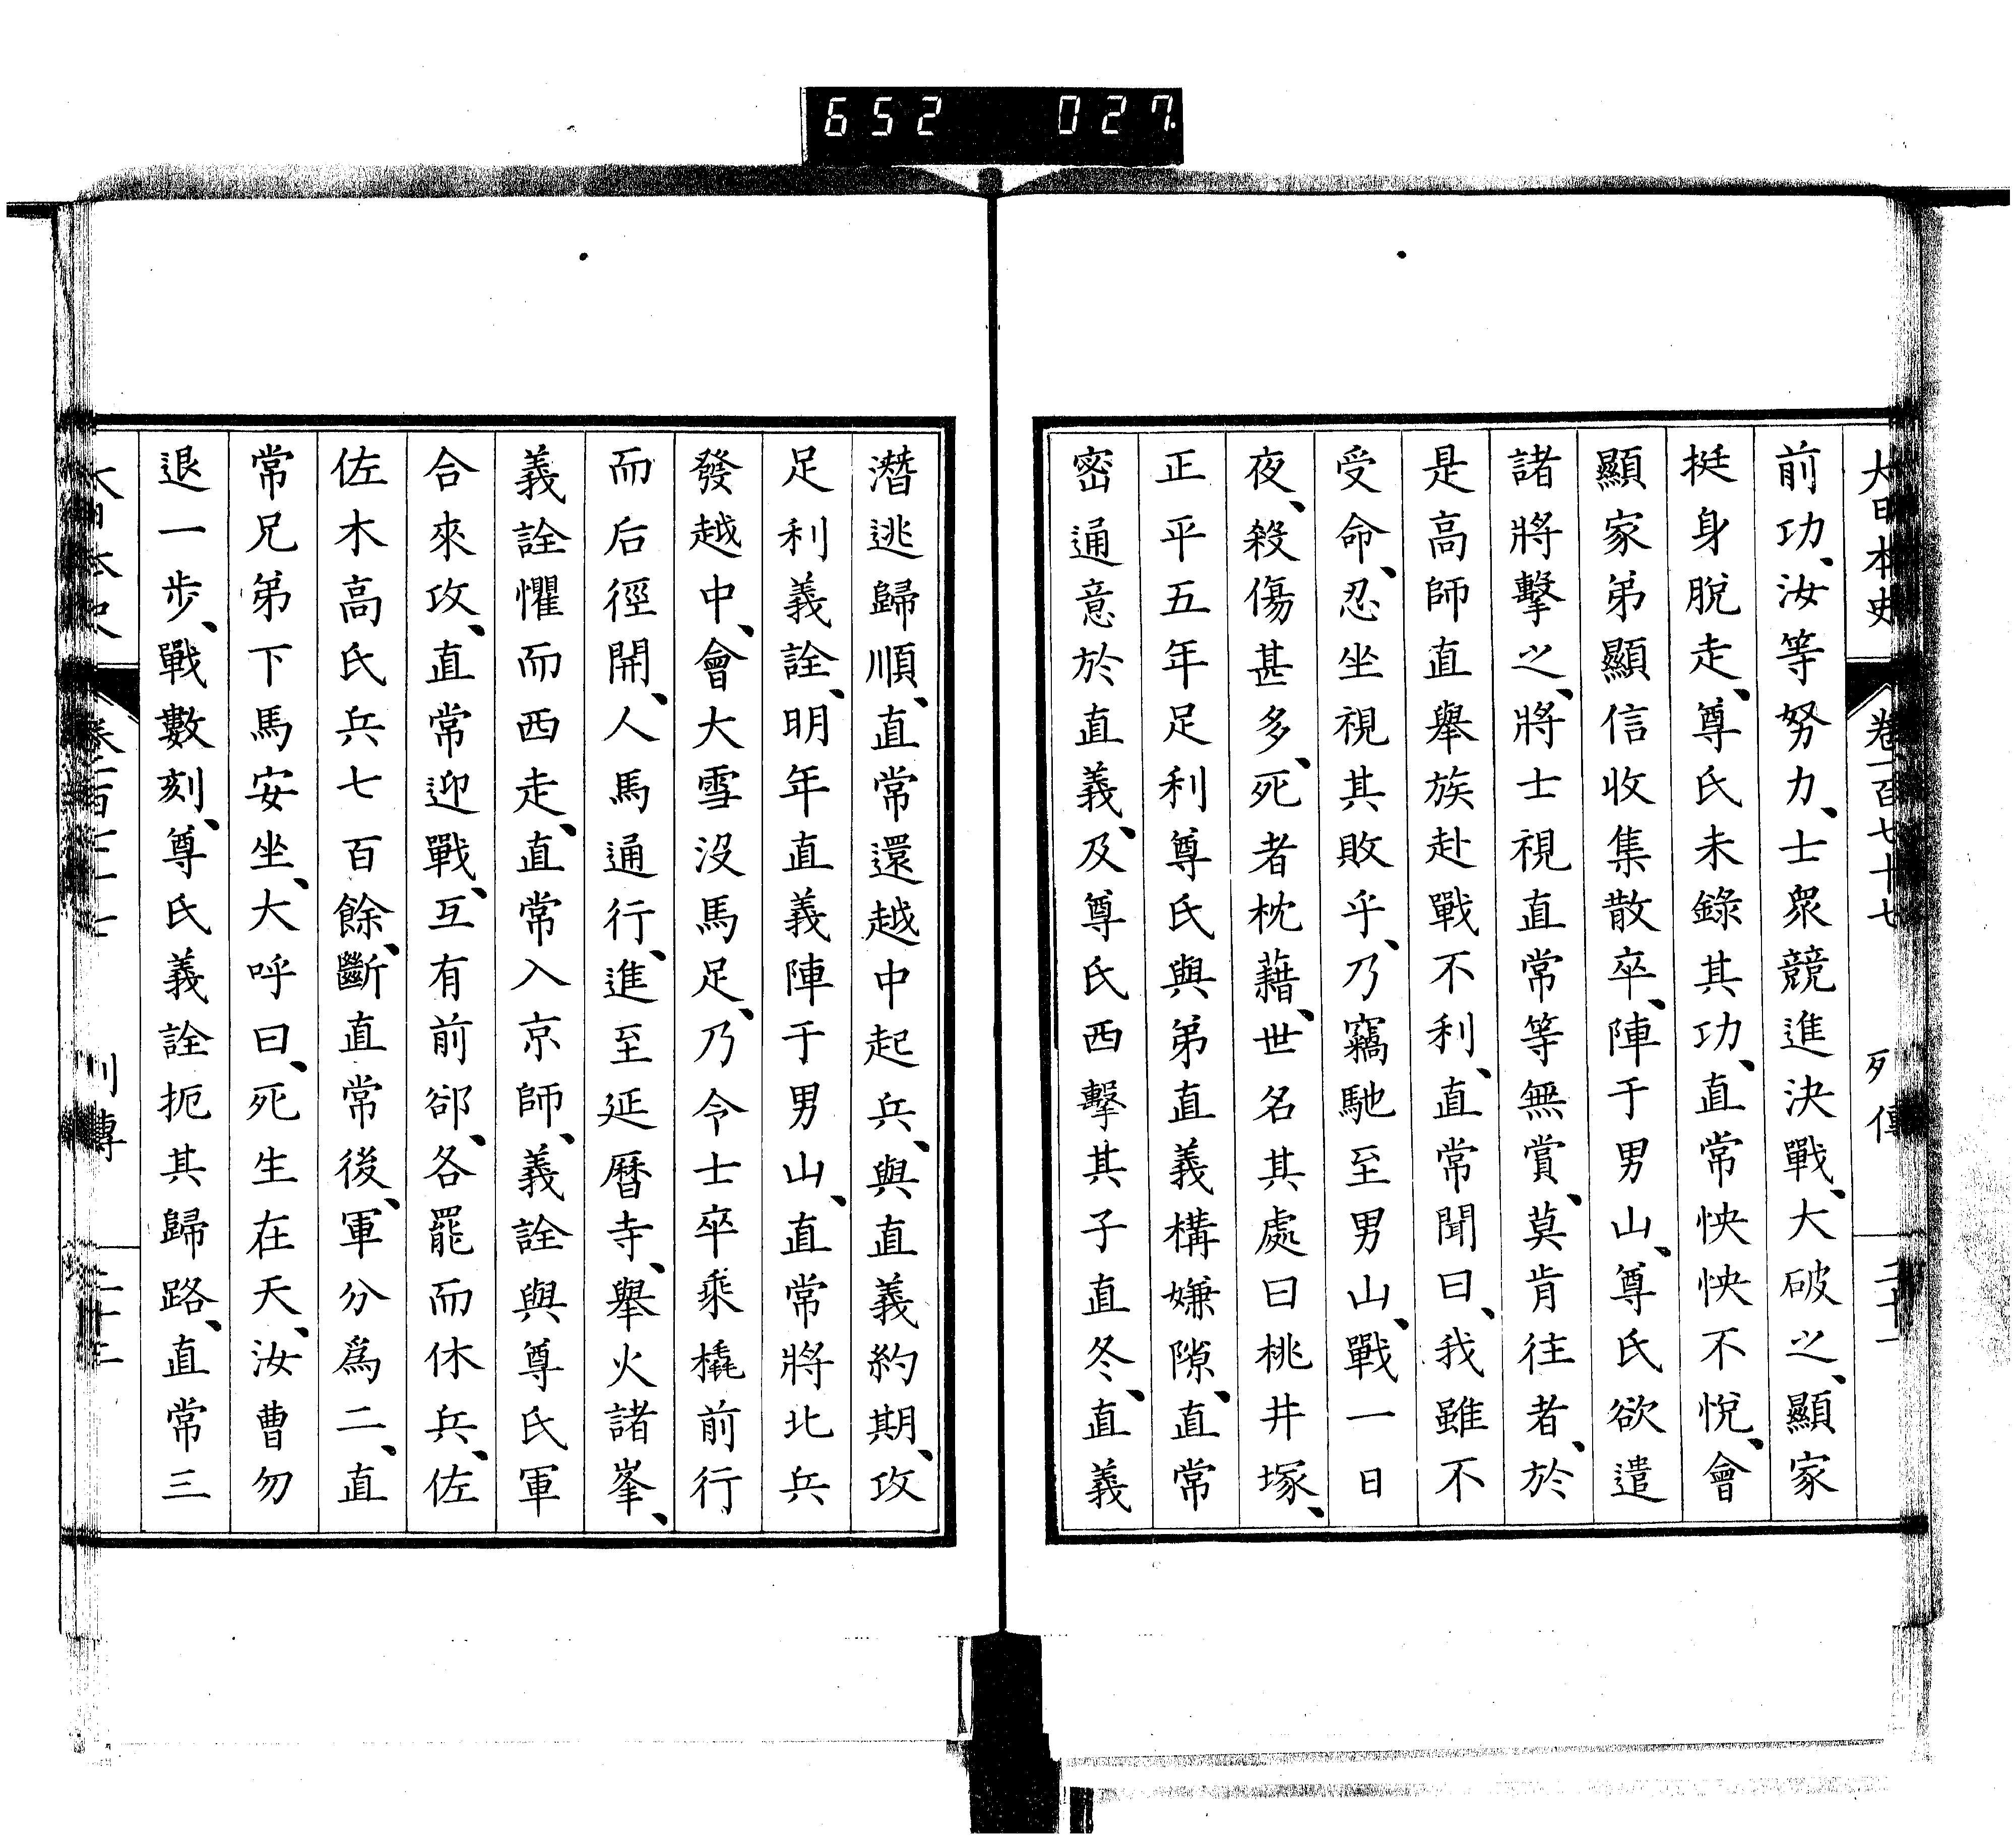 652 027
大日本史 卷一百七十七 列傳 二十一
前功、汝等努力、士衆競進決戰、大破之、顯家
挺身脫走、尊氏未錄其功、直常怏怏不悅、會
顯家弟顯信收集散卒、陣于男山、尊氏欲遣
諸將擊之、將士視直常等無賞、莫肯往者、於
是高師直舉族赴戰不利、直常聞曰、我雖不
受命、忍坐視其敗乎、乃竊馳至男山、戰一日
夜、殺傷甚多、死者枕藉、世名其處曰桃井塚、
正平五年足利尊氏與弟直義構嫌隙、直常
密通意於直義、及尊氏西擊其子直冬、直義
潛逃歸順、直常還越中起兵、與直義約期、攻
足利義詮、明年直義陣于男山、直常將北兵
發越中、會大雪沒馬足、乃令士卒乘橇前行
而后徑開、人馬通行、進至延曆寺、舉火諸峯、
義詮懼而西走、直常入京師、義詮與尊氏軍
合來攻、直常迎戰、互有前郤、各罷而休兵、佐
佐木高氏兵七百餘、斷直常後、軍分爲二、直
常兄弟下馬安坐、大呼曰、死生在天、汝曹勿
退一步、戰數刻、尊氏義詮扼其歸路、直常三
列傳